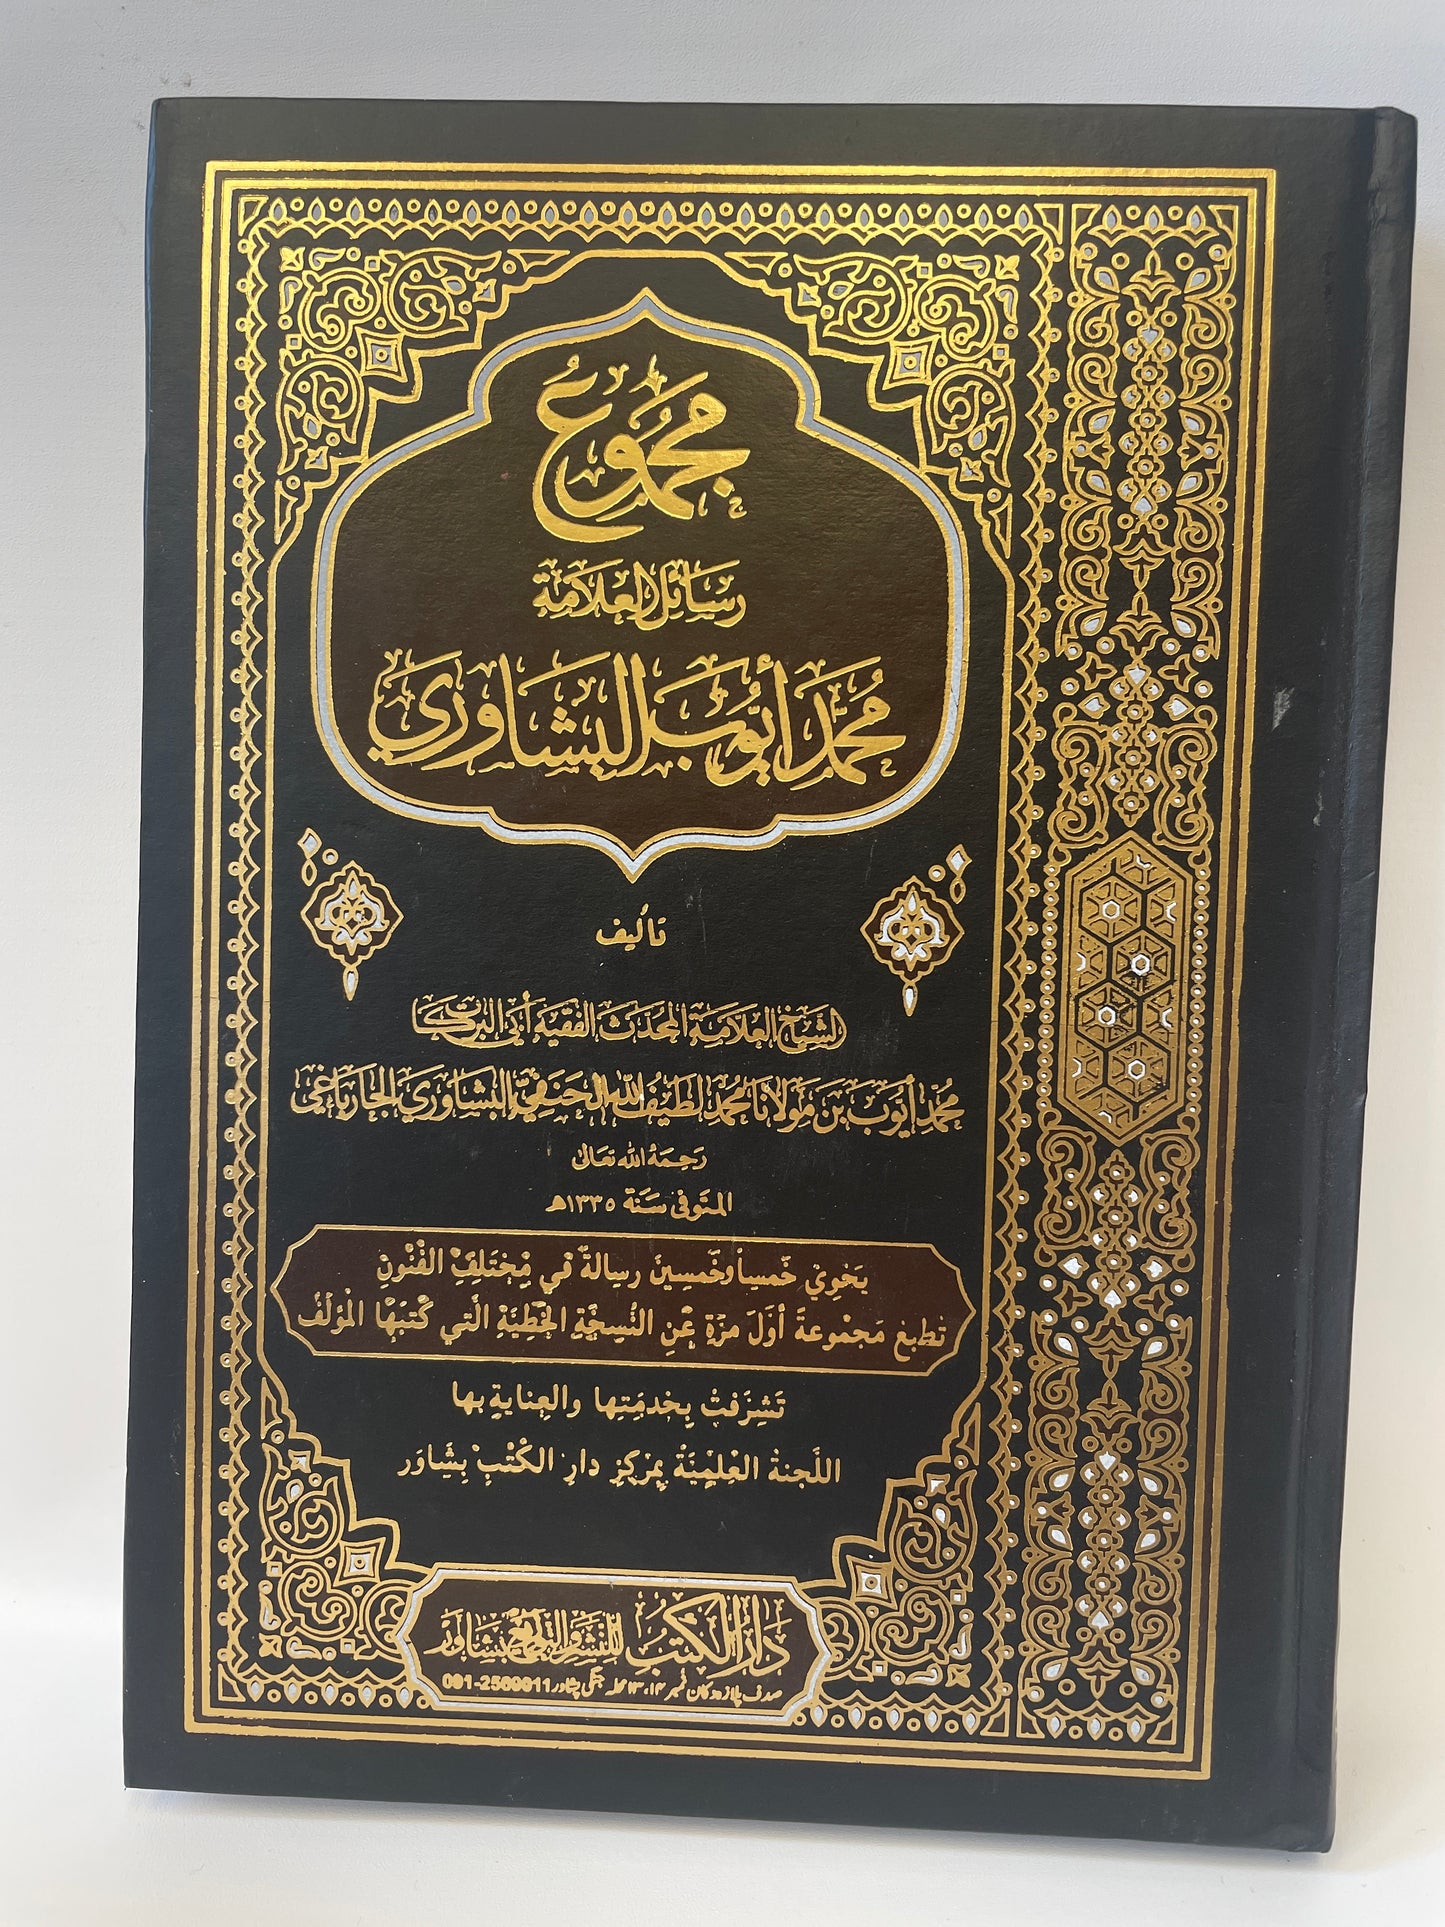 مجموع
رسائل العلامة
محمد أيوب البشاوري
تأليف
الشيخ العلامة المحدث الفقيه أبي البركات
محمد أيوب بن مولانا محمد لطيف الله الحنفي البشاوري الجارباغي
رحمه الله تعالى
المتوفى سنة ١٣٣٥هـ
يحوي خمسا وخمسين رسالة في مختلف الفنون
تطبع مجموعة أول مرة عن النسخة الخطية التي كتبها المؤلف
تشرفت بخدمتها والعناية بها
اللجنة العلمية بمركز دار الكتب بشاور
دار الكتب للنشر والتوزيع بشاور
صدف پلازہ دکان نمبر ۱۳،۱۴ محلہ جنگی پشاور 091-2580011